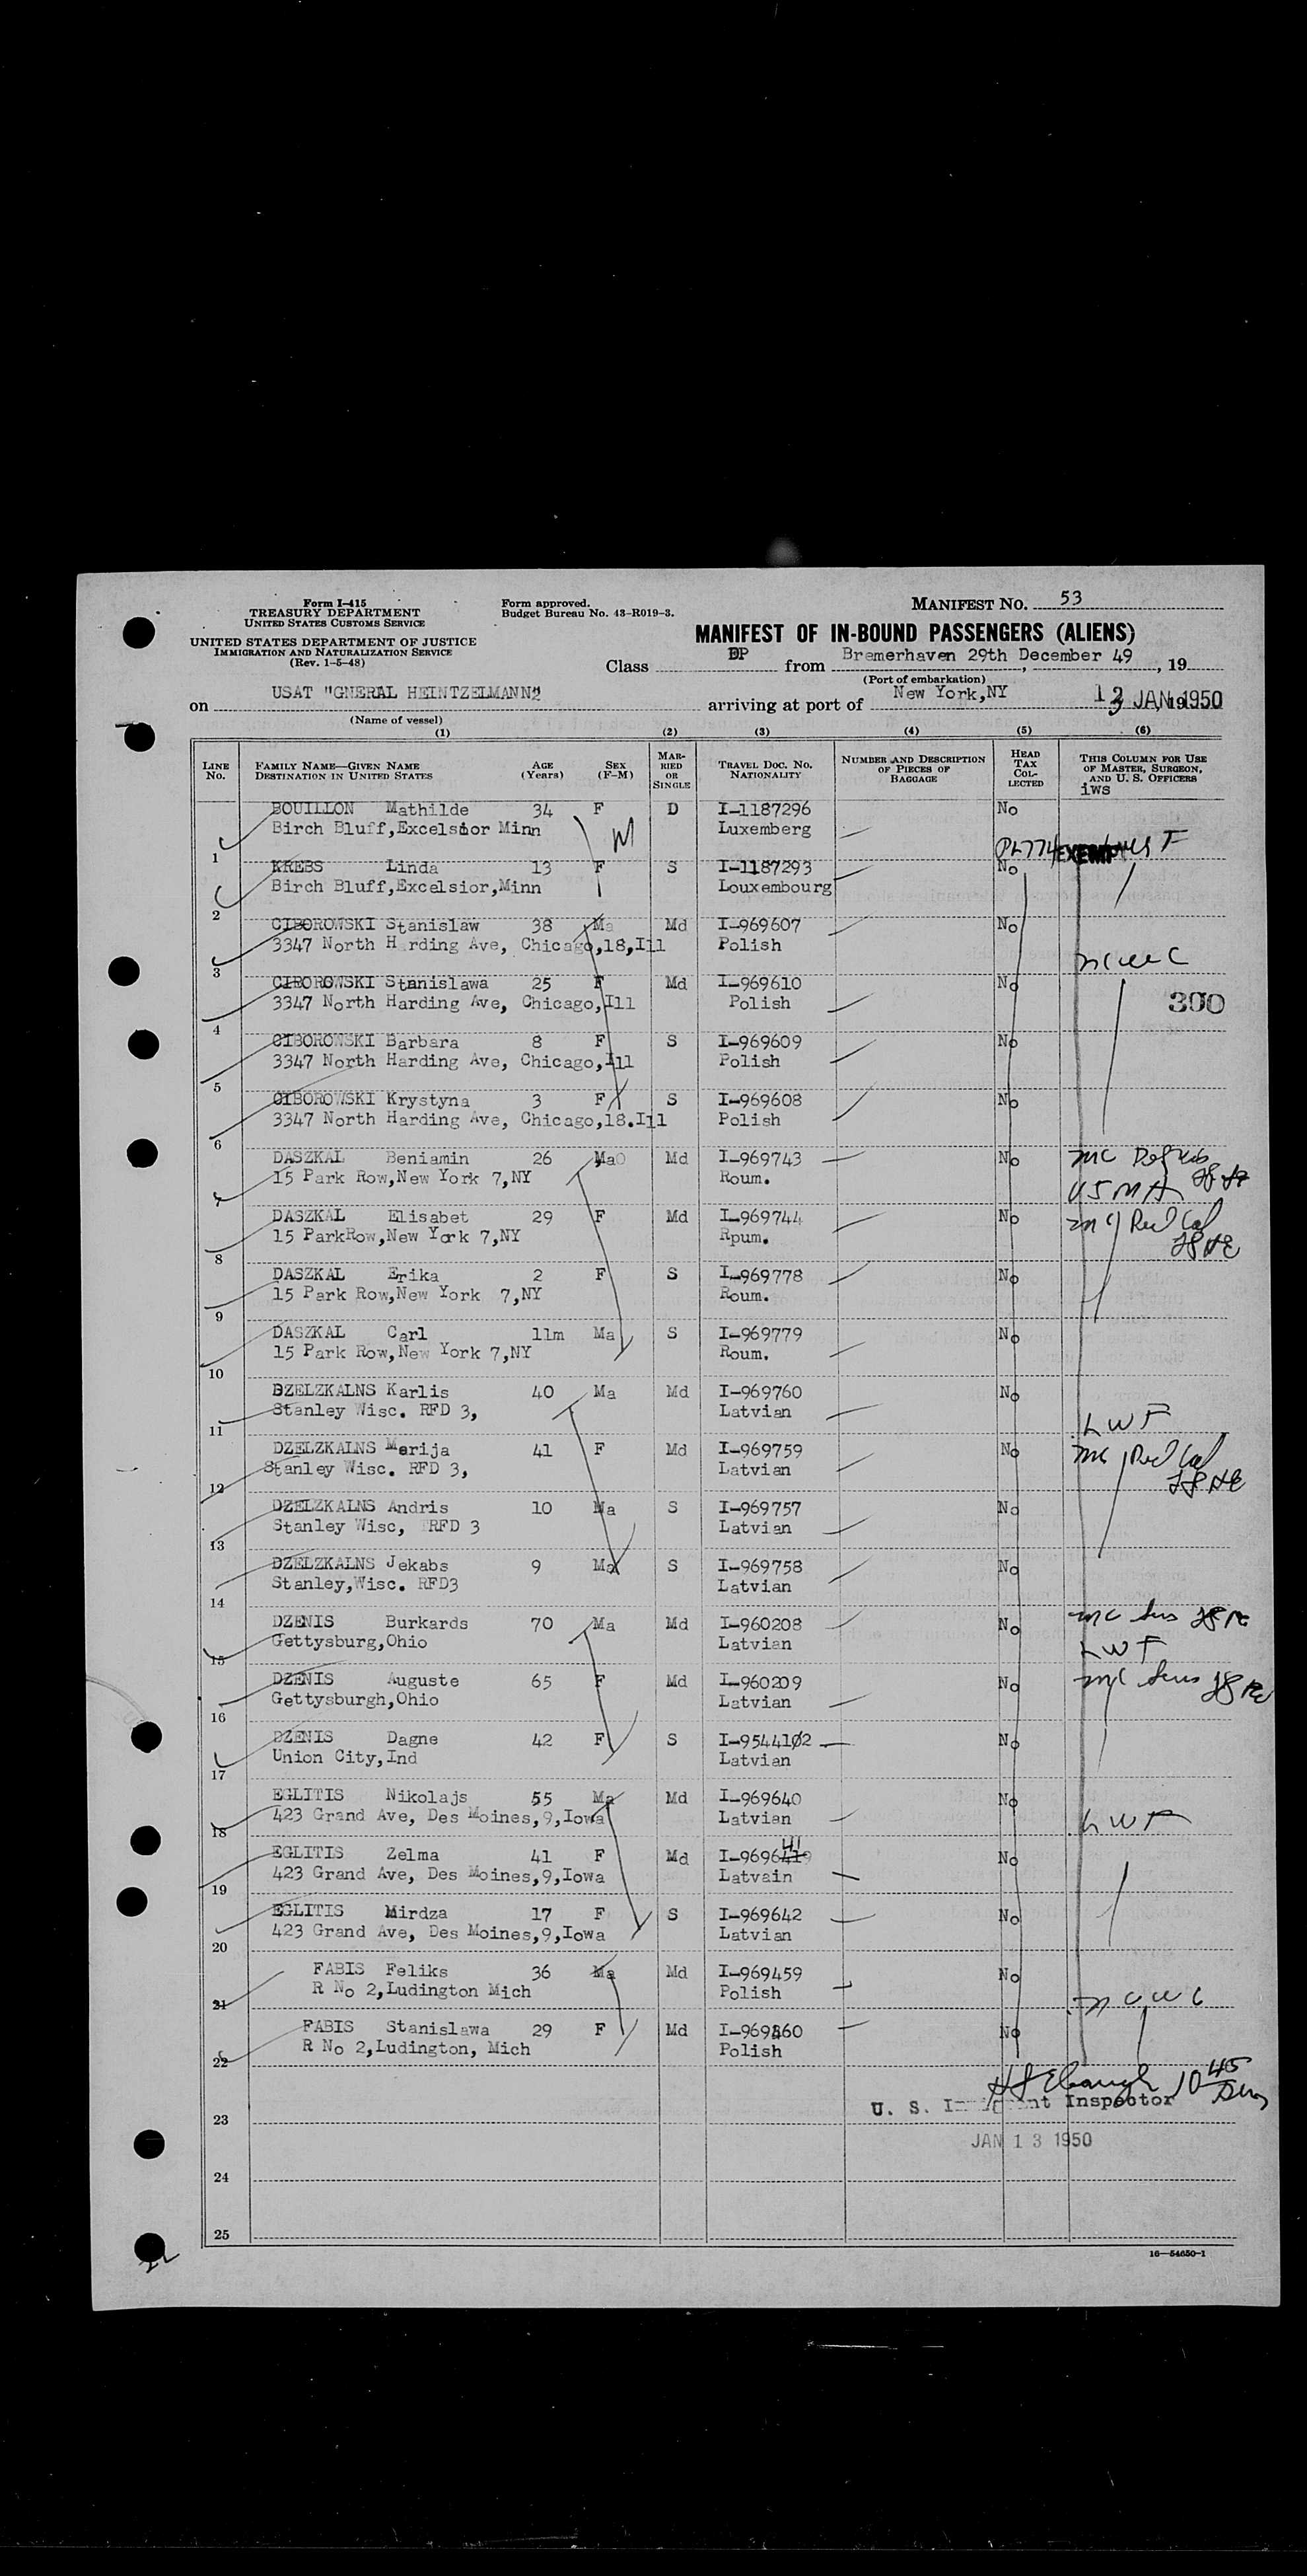 Form I-415
TREASURY DEPARTMENT
UNITED STATES CUSTOMS SERVICE
UNITED STATES DEPARTMENT OF JUSTICE
IMMIGRATION AND NATURALIZATION SERVICE
(Rev. 1-5-48)
Form approved.
Budget Bureau No. 43-R019-3.
MANIFEST NO. 53
MANIFEST OF IN-BOUND PASSENGERS (ALIENS)
Class DP from Bremerhaven 29th December 49, 19
(Port of embarkation)
on USAT "GNERAL HEINTZELMANN2 arriving at port of New York,NY 13 JAN 1950
(Name of vessel)
(1) (2) (3) (4) (5) (6)
LINE NO. FAMILY NAME—GIVEN NAME DESTINATION IN UNITED STATES AGE (Years) SEX (F-M) MARRIED OR SINGLE TRAVEL DOC. NO. NATIONALITY NUMBER AND DESCRIPTION OF PIECES OF BAGGAGE HEAD TAX COLLECTED THIS COLUMN FOR USE OF MASTER, SURGEON, AND U. S. OFFICERS
iws
BOUILLON Mathilde 34 F D I-1187296 No
1 Birch Bluff,Excelsior Minn M Luxemberg
PL774 EXEMPT
KREBS Linda 13 F S I-1187293 No
2 Birch Bluff,Excelsior,Minn Louxembourg
CIBOROWSKI Stanislaw 38 Ma Md I-969607 No
3 3347 North H rding Ave, Chicago,18,Ill Polish
CIBOROWSKI Stanislawa 25 F Md I-969610 No
4 3347 North Harding Ave, Chicago,Ill Polish 300
CIBOROWSKI Barbara 8 F S I-969609 No
5 3347 North Harding Ave, Chicago,Ill Polish
CIBOROWSKI Krystyna 3 F S I-969608 No
6 3347 North Harding Ave, Chicago,18.Ill Polish
DASZKAL Beniamin 26 Ma Md I-969743 No mc
7 15 Park Row,New York 7,NY Roum. USNA
DASZKAL Elisabet 29 F Md I-969744 No
8 15 ParkRow,New York 7,NY Rpum.
DASZKAL Erika 2 F S I-969778 No
9 15 Park Row,New York 7,NY Roum.
DASZKAL Carl 11m Ma S I-969779 No
10 15 Park Row,New York 7,NY Roum.
DZELZKALNS Karlis 40 Ma Md I-969760 No
11 Stanley Wisc. RFD 3, Latvian LWF
DZELZKALNS Marija 41 F Md I-969759 No
12 Stanley Wisc. RFD 3, Latvian
DZELZKALNS Andris 10 Ma S I-969757 No
13 Stanley Wisc, RFD 3 Latvian
DZELZKALNS Jekabs 9 Ma S I-969758 No
14 Stanley,Wisc. RFD3 Latvian
DZENIS Burkards 70 Ma Md I-960208 No mc
15 Gettysburg,Ohio Latvian LWF
DZENIS Auguste 65 F Md I-960209 No mc
16 Gettysburgh,Ohio Latvian
DZENIS Dagne 42 F S I-9544102 No
17 Union City,Ind Latvian
EGLITIS Nikolajs 55 Ma Md I-969640 No
18 423 Grand Ave, Des Moines,9,Iowa Latvian LWF
EGLITIS Zelma 41 F Md I-969641 No
19 423 Grand Ave, Des Moines,9,Iowa Latvain
EGLITIS Mirdza 17 F S I-969642 No
20 423 Grand Ave, Des Moines,9,Iowa Latvian
FABIS Feliks 36 Ma Md I-969459 No
21 R No 2,Ludington Mich Polish NCWC
FABIS Stanislawa 29 F Md I-969460 No
22 R No 2,Ludington, Mich Polish
10 45
23 U. S. Immigrant Inspector
JAN 13 1950
24
25
16—54650-1